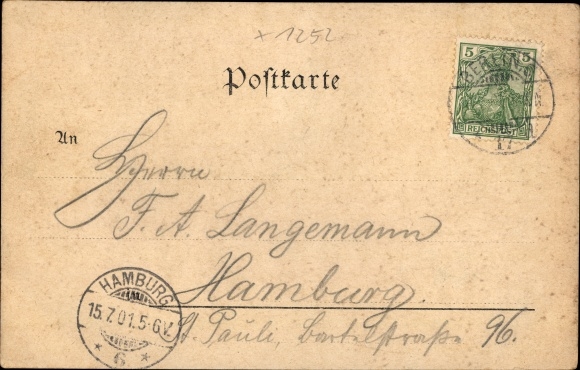 x 1252.
Postkarte
5
BERLIN
REICHSPOST
An
Herrn
F. A. Langemann
Hamburg.
St. Pauli, Bartelstraße 96.
HAMBURG
15.7.01.5-6V.
* 6 *